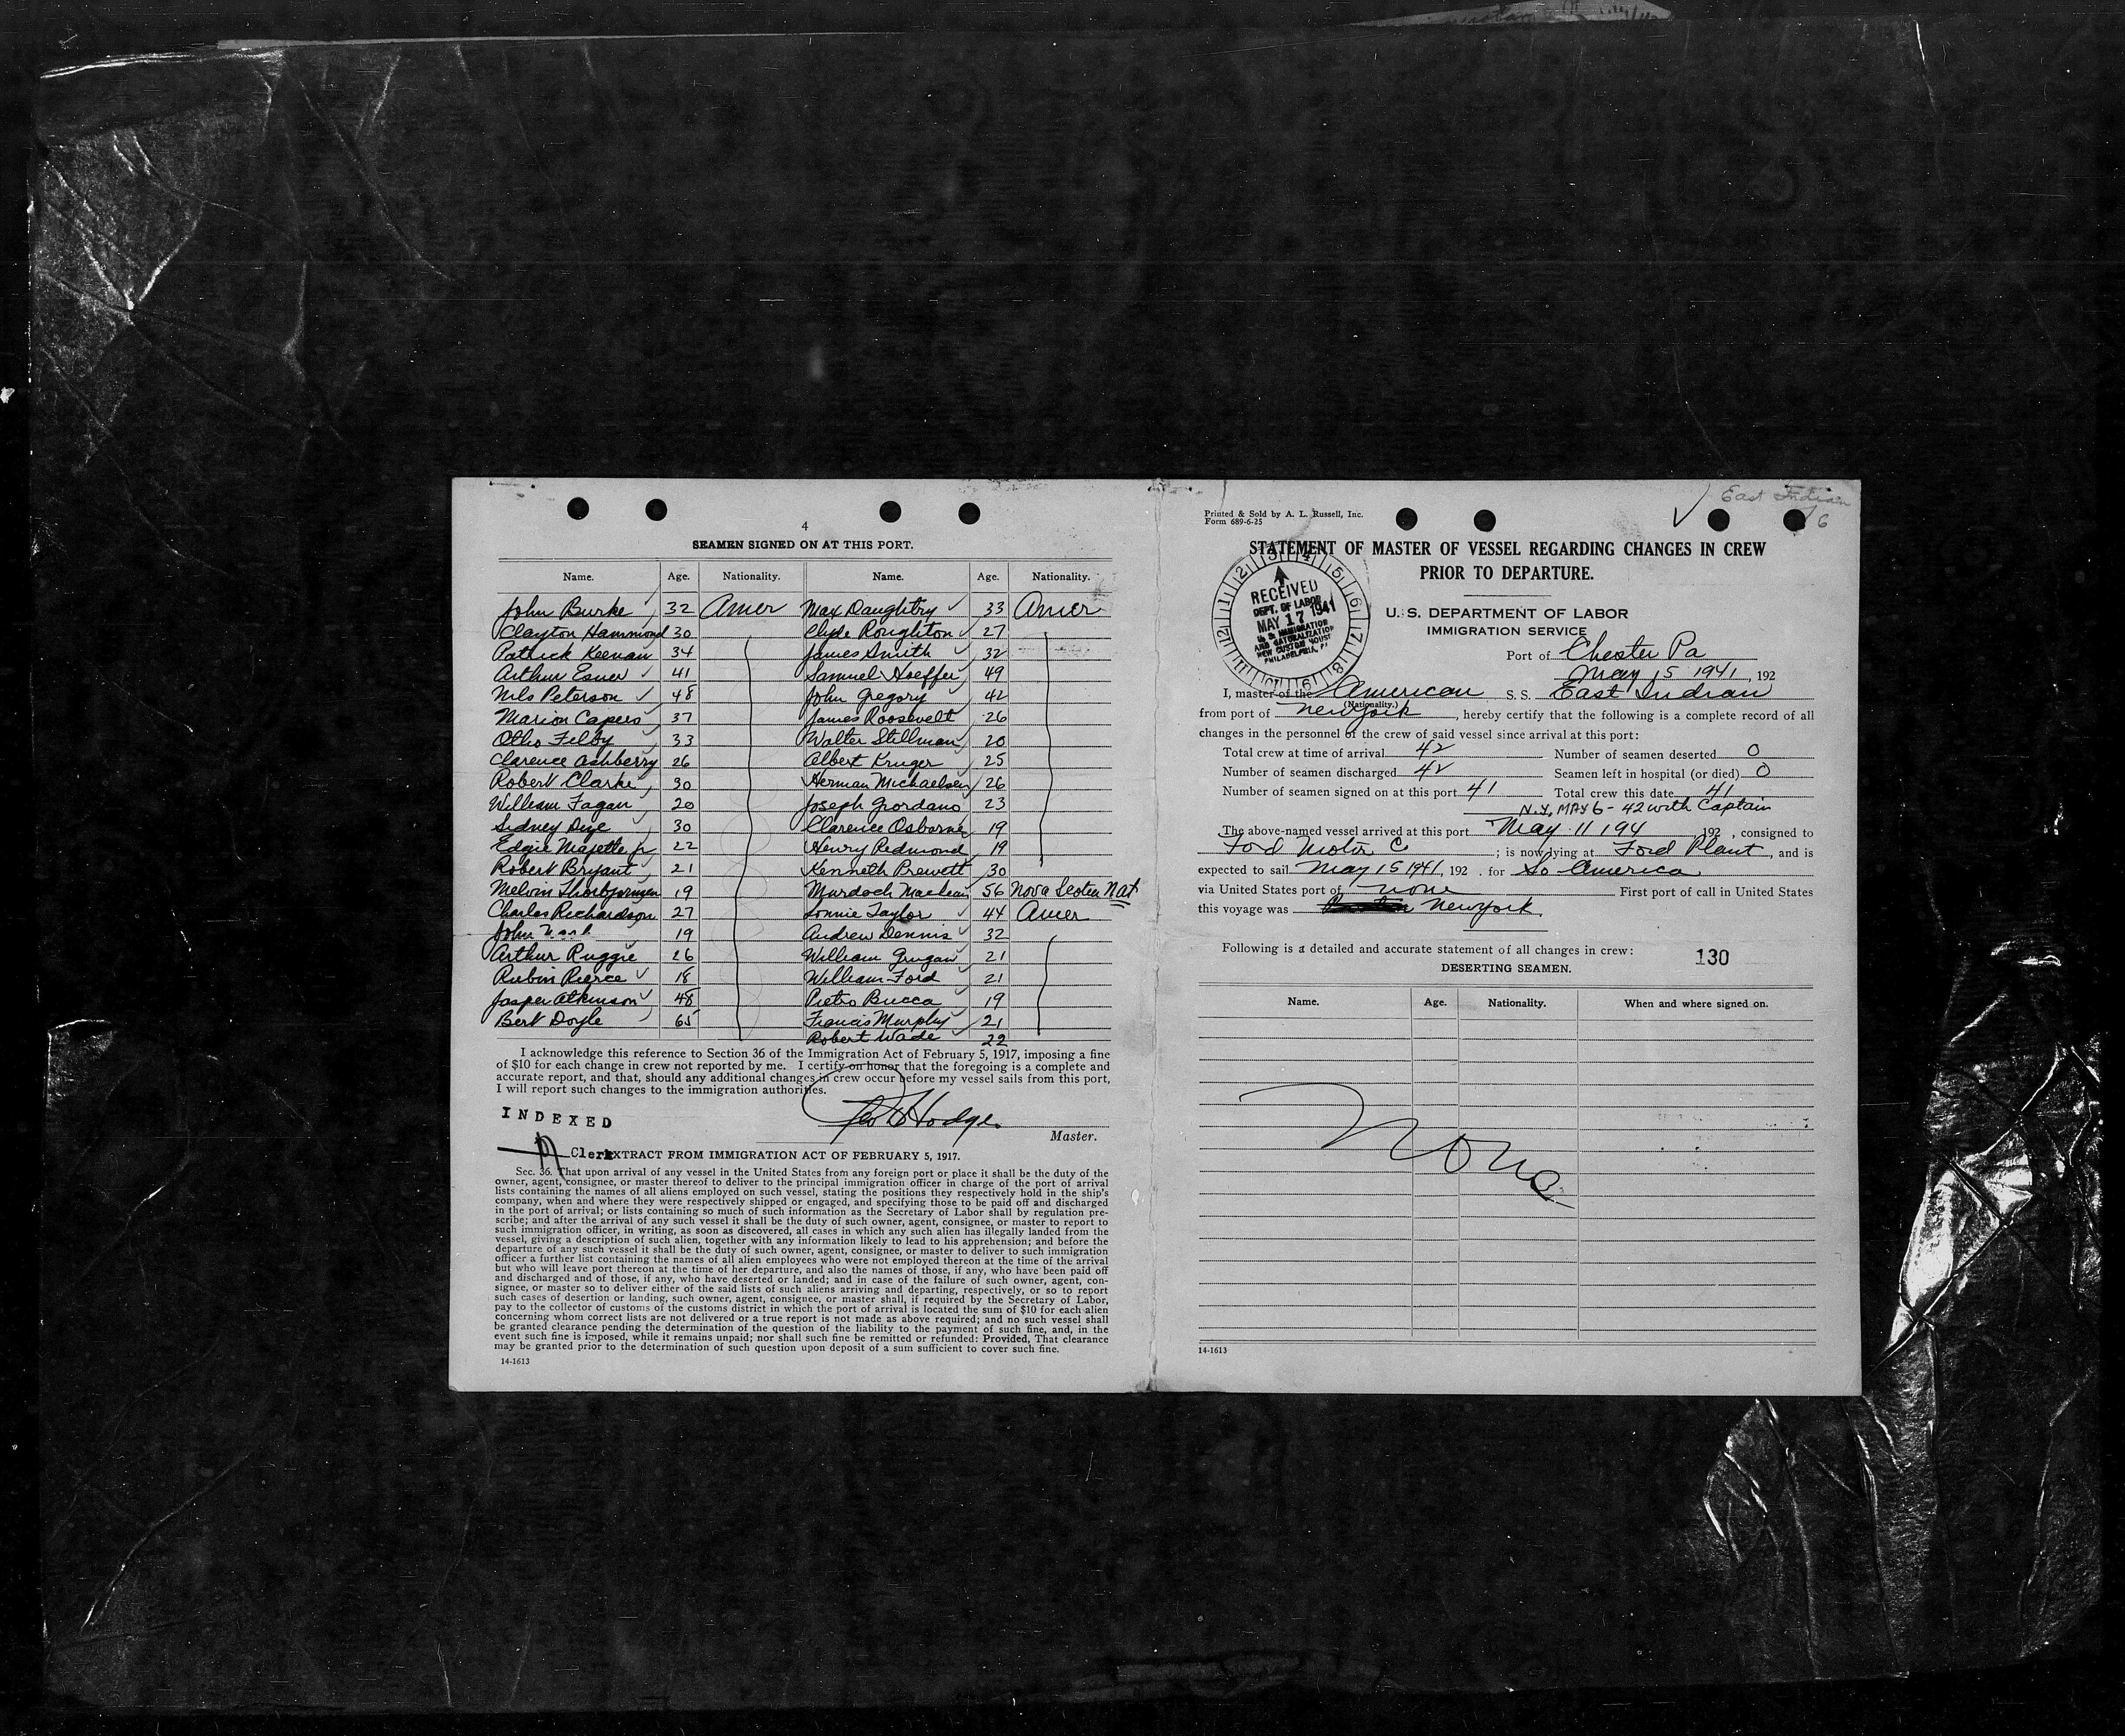 4
SEAMEN SIGNED ON AT THIS PORT.
Name. Age. Nationality. Name. Age. Nationality.
John Burke 32 Amer Max Daughtry 33 Amer
Clayton Hammond 30 Clyde Roughton 27
Patrick Keenan 34 James Smith 32
Arthur Esner 41 Samuel Hoeffer 49
Nils Peterson 48 John Gregory 42
Marion Capers 37 James Roosevelt 26
Otho Felby 33 Walter Stillman 20
Clarence Ashberry 26 Albert Kruger 25
Robert Clarke 30 Herman Michaelsen 26
William Fagan 20 Joseph Giordano 23
Sidney Dize 30 Clarence Osborne 19
Edgie Majette Jr 22 Henry Redmond 19
Robert Bryant 21 Kenneth Prewett 30
Melvin Thorbjornsen 19 Murdoch Maclean 56 Nova Scotia Nat
Charles Richardson 27 Lonnie Taylor 44 Amer
John 19 Andrew Dennis 32
Arthur Ruggie 26 William Grugan 21
Rubin Pierce 18 William Ford 21
Jasper Atkinson 48 Pietro Bucca 19
Bert Doyle 65 Francis Murphy 21
Robert Wade 22
I acknowledge this reference to Section 36 of the Immigration Act of February 5, 1917, imposing a fine
of $10 for each change in crew not reported by me. I certify on honor that the foregoing is a complete and
accurate report, and that, should any additional changes in crew occur before my vessel sails from this port,
I will report such changes to the immigration authorities.
INDEXED
Geo D Hodge
Master.
Clerk
EXTRACT FROM IMMIGRATION ACT OF FEBRUARY 5, 1917.
Sec. 36. That upon arrival of any vessel in the United States from any foreign port or place it shall be the duty of the
owner, agent, consignee, or master thereof to deliver to the principal immigration officer in charge of the port of arrival
lists containing the names of all aliens employed on such vessel, stating the positions they respectively hold in the ship's
company, when and where they were respectively shipped or engaged, and specifying those to be paid off and discharged
in the port of arrival; or lists containing so much of such information as the Secretary of Labor shall by regulation pre-
scribe; and after the arrival of any such vessel it shall be the duty of such owner, agent, consignee, or master to report to
such immigration officer, in writing, as soon as discovered, all cases in which any such alien has illegally landed from the
vessel, giving a description of such alien, together with any information likely to lead to his apprehension; and before the
departure of any such vessel it shall be the duty of such owner, agent, consignee, or master to deliver to such immigration
officer a further list containing the names of all alien employees who were not employed thereon at the time of the arrival
but who will leave port thereon at the time of her departure, and also the names of those, if any, who have been paid off
and discharged and of those, if any, who have deserted or landed; and in case of the failure of such owner, agent, con-
signee, or master so to deliver either of the said lists of such aliens arriving and departing, respectively, or so to report
such cases of desertion or landing, such owner, agent, consignee, or master shall, if required by the Secretary of Labor,
pay to the collector of customs of the customs district in which the port of arrival is located the sum of $10 for each alien
concerning whom correct lists are not delivered or a true report is not made as above required; and no such vessel shall
be granted clearance pending the determination of the question of the liability to the payment of such fine, and, in the
event such fine is imposed, while it remains unpaid; nor shall such fine be remitted or refunded: Provided, That clearance
may be granted prior to the determination of such question upon deposit of a sum sufficient to cover such fine.
14-1613
East Indian
6
Printed & Sold by A. L. Russell, Inc.
Form 689-6-25
STATEMENT OF MASTER OF VESSEL REGARDING CHANGES IN CREW
PRIOR TO DEPARTURE.
RECEIVED
DEPT. OF LABOR
MAY 17 1941
U. S. IMMIGRATION
AND NATURALIZATION
NEW CUSTOM HOUSE
PHILADELPHIA, PA
U. S. DEPARTMENT OF LABOR
IMMIGRATION SERVICE
Port of Chester Pa
May 15 1941, 192
I, master of the American S. S. East Indian
(Nationality.)
from port of New York, hereby certify that the following is a complete record of all
changes in the personnel of the crew of said vessel since arrival at this port:
Total crew at time of arrival 42 Number of seamen deserted 0
Number of seamen discharged 42 Seamen left in hospital (or died) 0
Number of seamen signed on at this port 41 Total crew this date 41
N.Y. MAY 6 - 42 with Captain
The above-named vessel arrived at this port May 11 194 192 , consigned to
Ford Motor Co ; is now lying at Ford Plant, and is
expected to sail May 15 1941, 192 . for So America
via United States port of none First port of call in United States
this voyage was New York.
Following is a detailed and accurate statement of all changes in crew:
130
DESERTING SEAMEN.
Name. Age. Nationality. When and where signed on.
None
14-1613